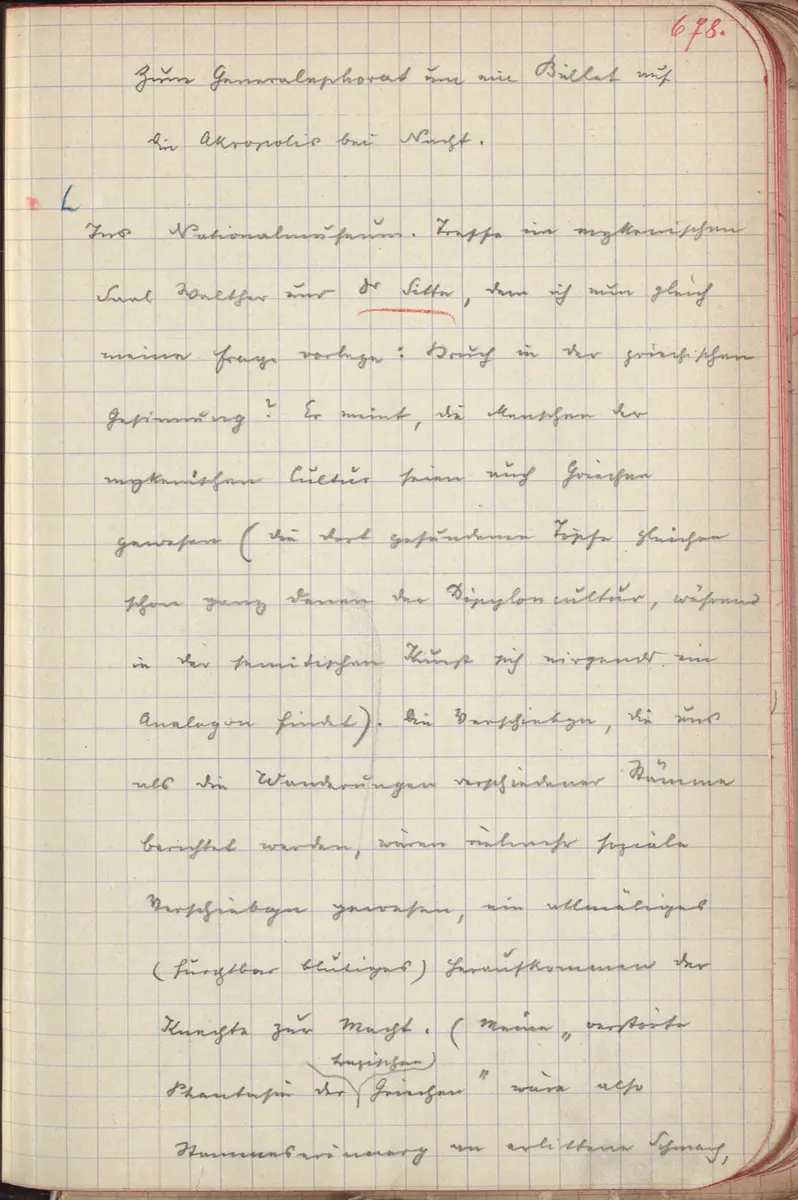 678.
Zum Generalephorat um ein Billet auf
die Akropolis bei Nacht.
L
Ins Nationalmuseum. Treffe im mykenischen
Saal Walther und Dr Sitte, dem ich nun gleich
meine Frage vorlege: Bruch in der griechischen
Gesinnung? Er meint, die Menschen der
mykenischen Cultur seien auch Griechen
gewesen (die dort gefundenen Töpfe gleichen
schon ganz denen der Dipyloncultur, während
in der semitischen Kunst sich nirgends ein
Analogon findet). Die Verschiebgn, die uns
als die Wanderungen verschiedener Stämme
berichtet werden, wären vielmehr soziale
Verschiebgn gewesen, ein allmäliges
(furchtbar blutiges) Heraufkommen der
Knechte zur Macht. (Meine „verstörte
tragischen
Phantasie der Griechen" wäre also
Stammeserinnerg an erlittene Schmach,